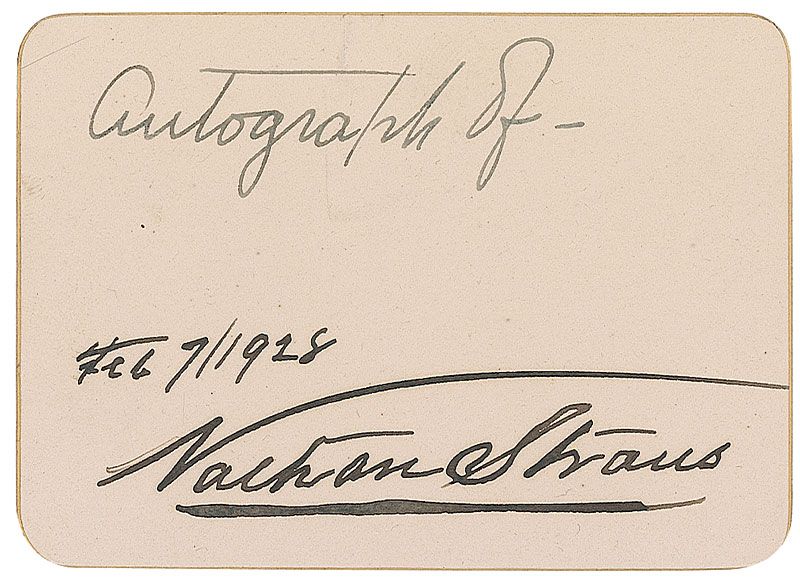 Autograph of -
Feb 7/1928
Nathan Straus